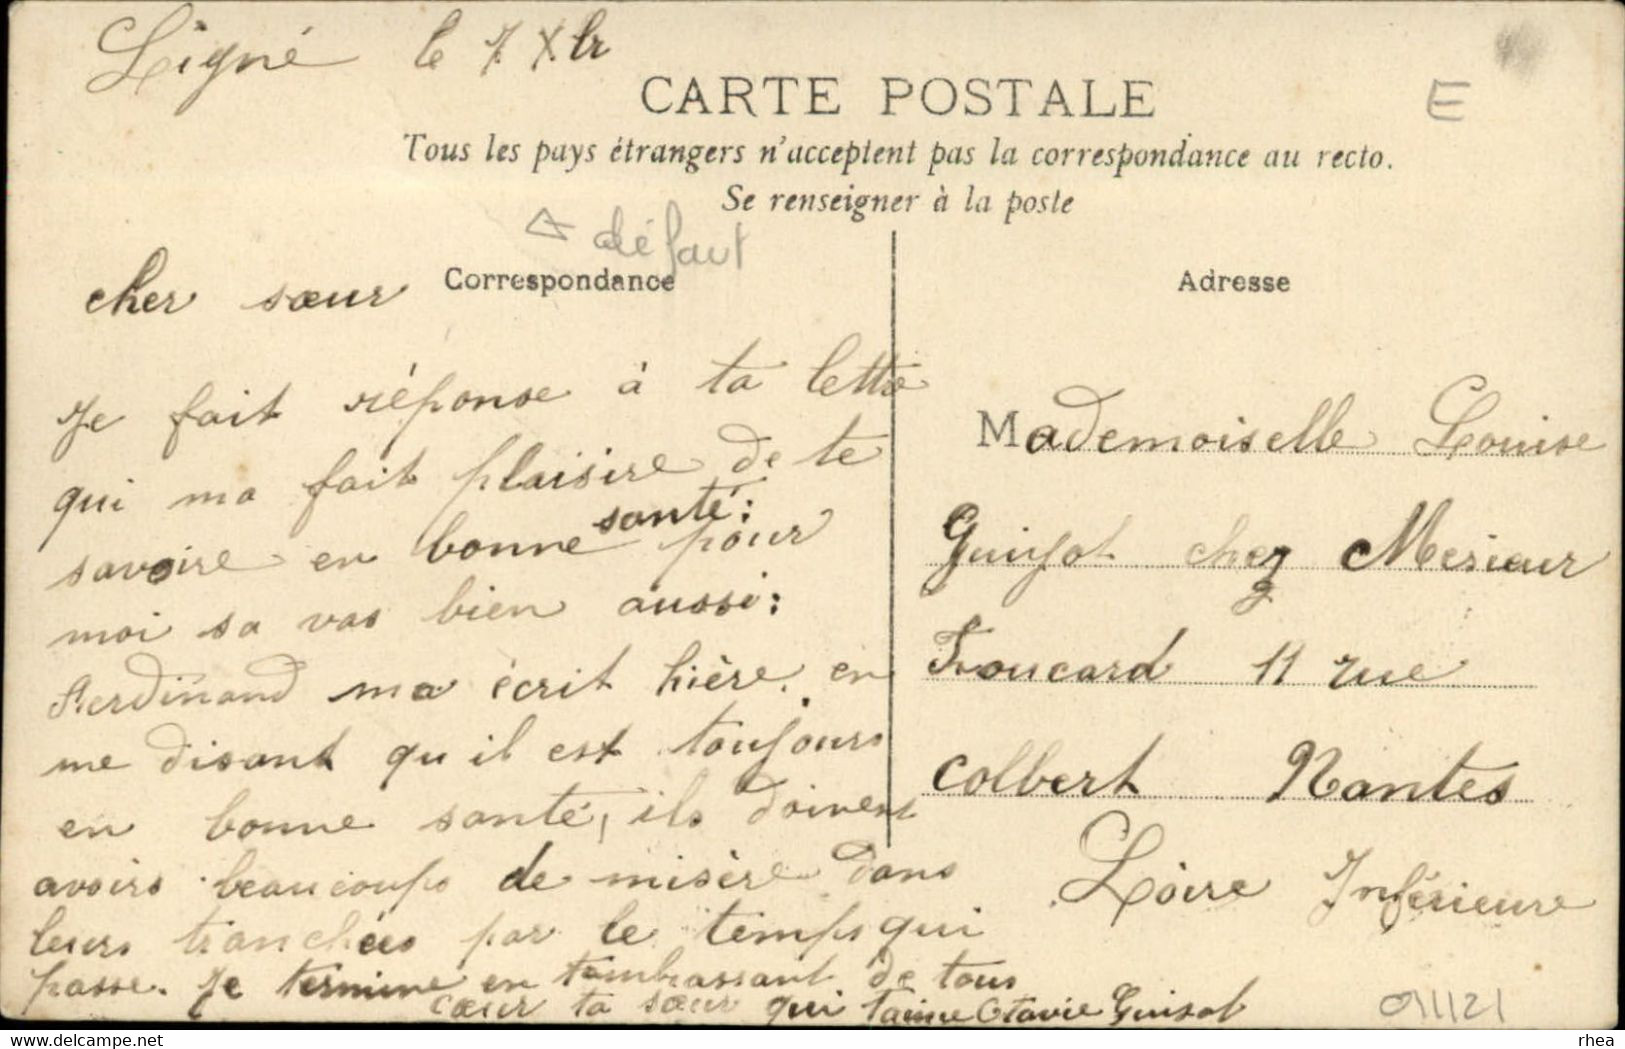 Ligné le 7 Xbr
CARTE POSTALE
E
Tous les pays étrangers n'acceptent pas la correspondance au recto.
Se renseigner à la poste
défaut
Correspondance
cher sœur
Je fait réponse à ta lettre
qui ma fait plaisire de te
savoire en bonne santé: pour
moi sa vas bien aussi:
Ferdinand ma écrit hière. en
me disant qu il est toujours
en bonne santé, ils doivent
avoirs beaucoups de misère dans
leurs tranchées par le temps qui
passe. Je termine en t'embrassant de tous
cœur ta sœur qui t'aime Otavie Guisot
Adresse
Mademoiselle Louise
Guisot chez Mesieur
Foucard 11 rue
Colbert Nantes
Loire Inférieure
091121
rhea